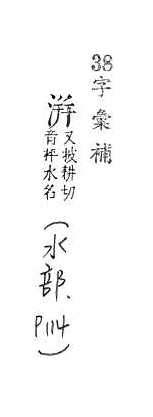 38字彙補
又披耕切
音枰水名
(水部、P114)